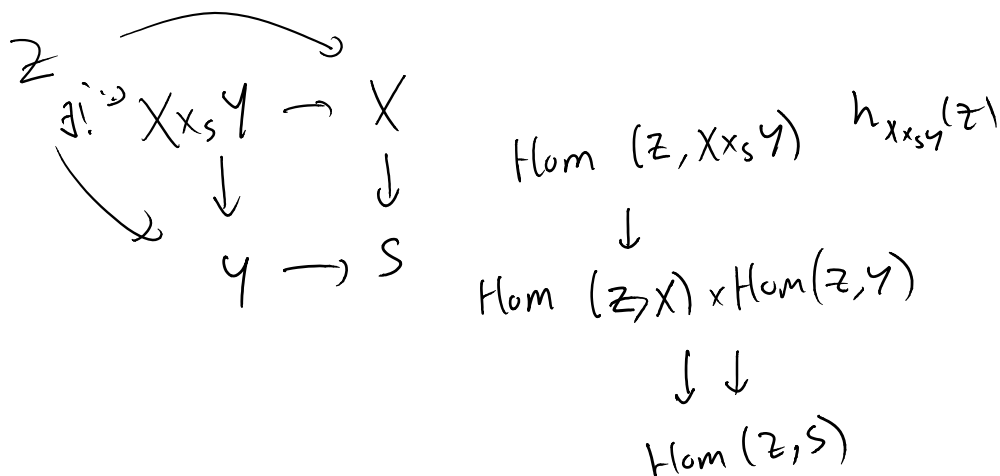 Z
∃! X×ₛY → X
Y → S
Hom (Z, X×ₛY) h_{X×ₛY}(Z)
↓
Hom (Z,X) × Hom(Z,Y)
↓ ↓
Hom (Z,S)